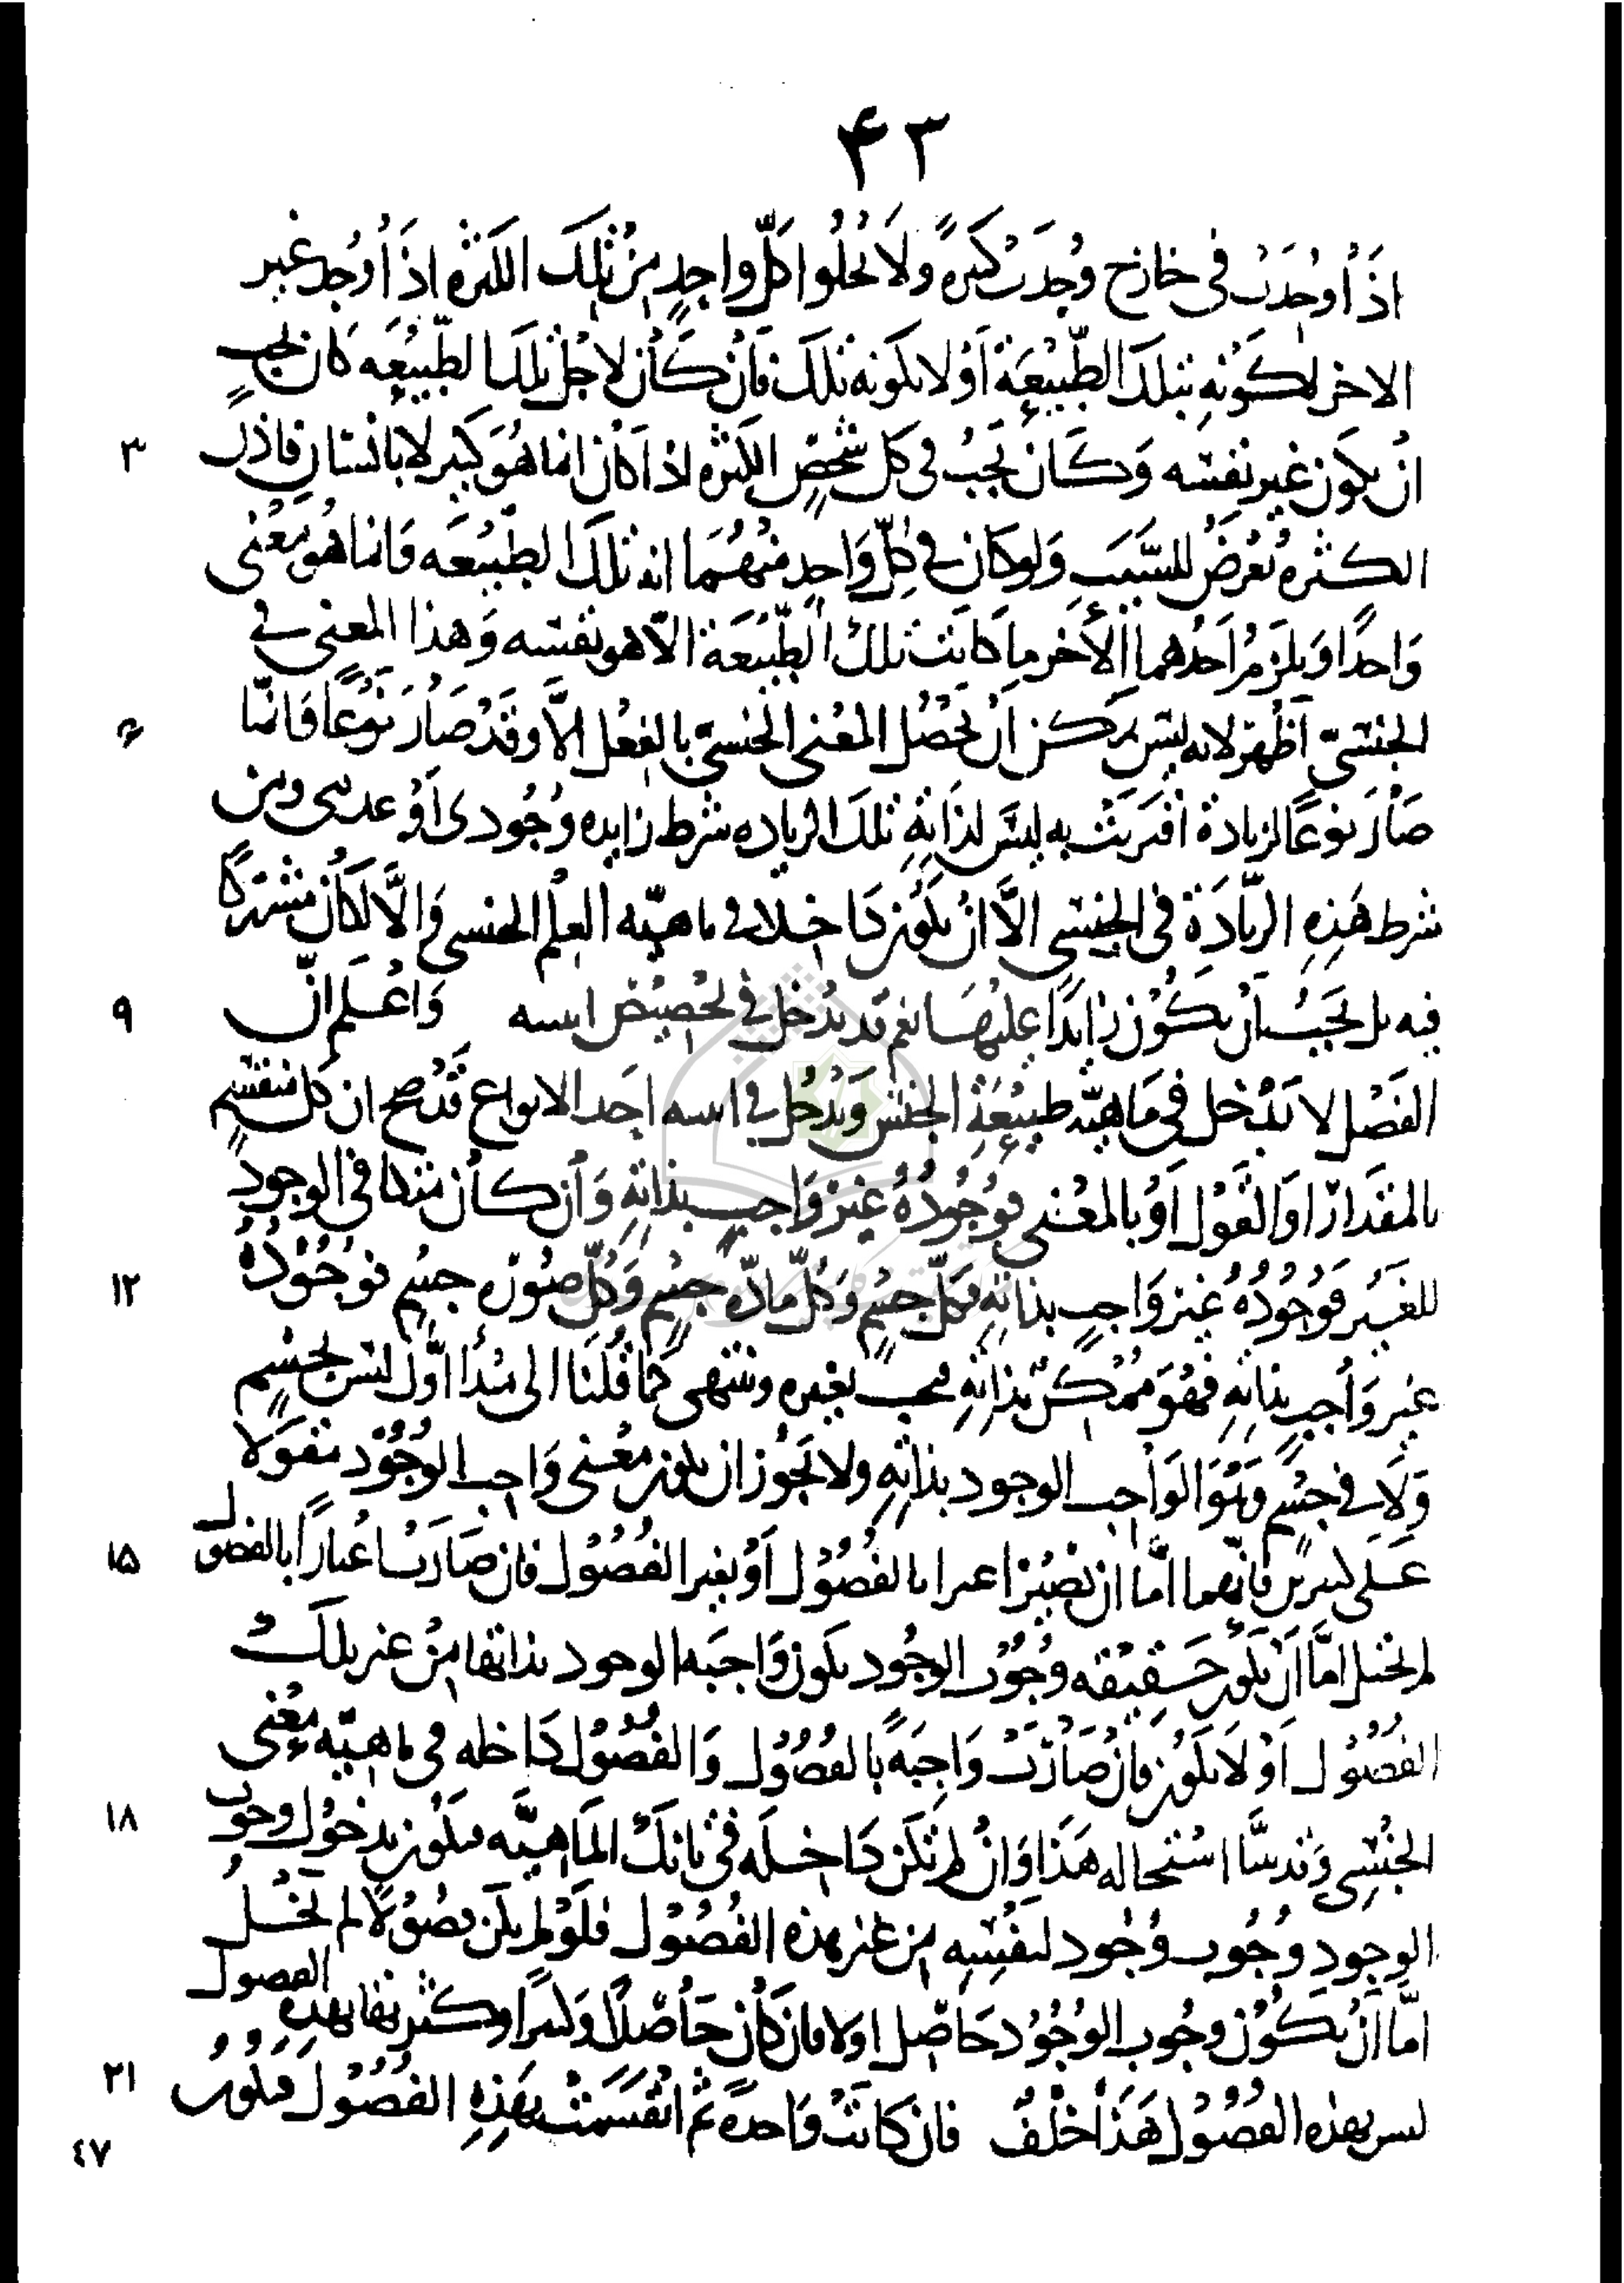 ۴۳
اذا وجدت فی خارج وجدت کثیرة ولا تخلوا کل واحد من تلک الکثره اذا وجد غیر
الاخر لکونه بتلک الطبیعة او لا بکونه تلک فان کان لاجل تلک الطبیعه کان یجب
۳ ان یکون غیر نفسه وکان یجب فی کل شخص الکثره اذا کان انما هو کثیر لا بانسان فاذن
الکثره تعرض للسبب ولو کان فی کل واحد منهما انه تلک الطبیعه فانما هو معنی
واحدا ویلزم احدهما الآخر ما کانت تلک الطبیعة الا هو نفسه وهذا المعنی فی
۶ الجنسی اظهر لانه لیس یمکن ان تحصل المعنی الجنسی بالفعل الا وقد صار نوعا فانما
صار نوعا لزیادة اقترنت به لیس لذاته تلک الزیاده شرط زایده وجودی او عدمی ومن
شرط هذه الزیادة فی الجنسی الا ان یکون داخلا فی ماهیه العلم الجنسی والا لکان مشترکا
۹ فیه بل یجب ان یکون زایدا علیها نعم قد یدخل فی تخصیص انیته واعلم ان
الفصل لا یدخل فی ماهیه طبیعة الجنس ویدخل فی انیته احد الانواع قد صح ان کل منقسم
بالمقدار او القول او بالمعنی فوجوده غیر واجب بذاته وان کان متکا فی الوجود
۱۲ للغیر فوجوده غیر واجب بذاته فکل جسم وکل مادّه جسم وکل صورة جسم فوجوده
غیر واجب بذاته فهو ممکن بذاته فیجب بغیره وینتهی کما قلنا الی مبدأ اول لیس بجسم
ولا فی جسم وهو الواجب الوجود بذاته ولا یجوز ان یکون معنی واجب الوجود مقولا
۱۵ علی کثیرین فانهما اما ان تصیر اغیرا بالفصول او بغیر الفصول فان صارت اغیارا بالفصول
لم یخل اما ان یکون حقیقه وجوب الوجود یکون واجبه الوجود بذاتها من غیر تلک
الفصول او لا یکون فان صارت واجبة بالفصول والفصول داخله فی ماهیه معنی
۱۸ الجنسی وقد بینا استحاله هذا وان لم تکن داخله فی تانک الماهیه فیکون بدخول وجوب
الوجود وجوب وجود لنفسه من غیر هذه الفصول فلو لم یکن فصولا لم یخل
اما ان یکون وجوب الوجود حاصل اولا فان کان حاصلا وکثیرا وکثرتها بهذه الفصول
۲۱ لیس بهذه الفصول هذا خلف فان کانت واحدة ثم انقسمت بهذه الفصول فیکون
٤٧